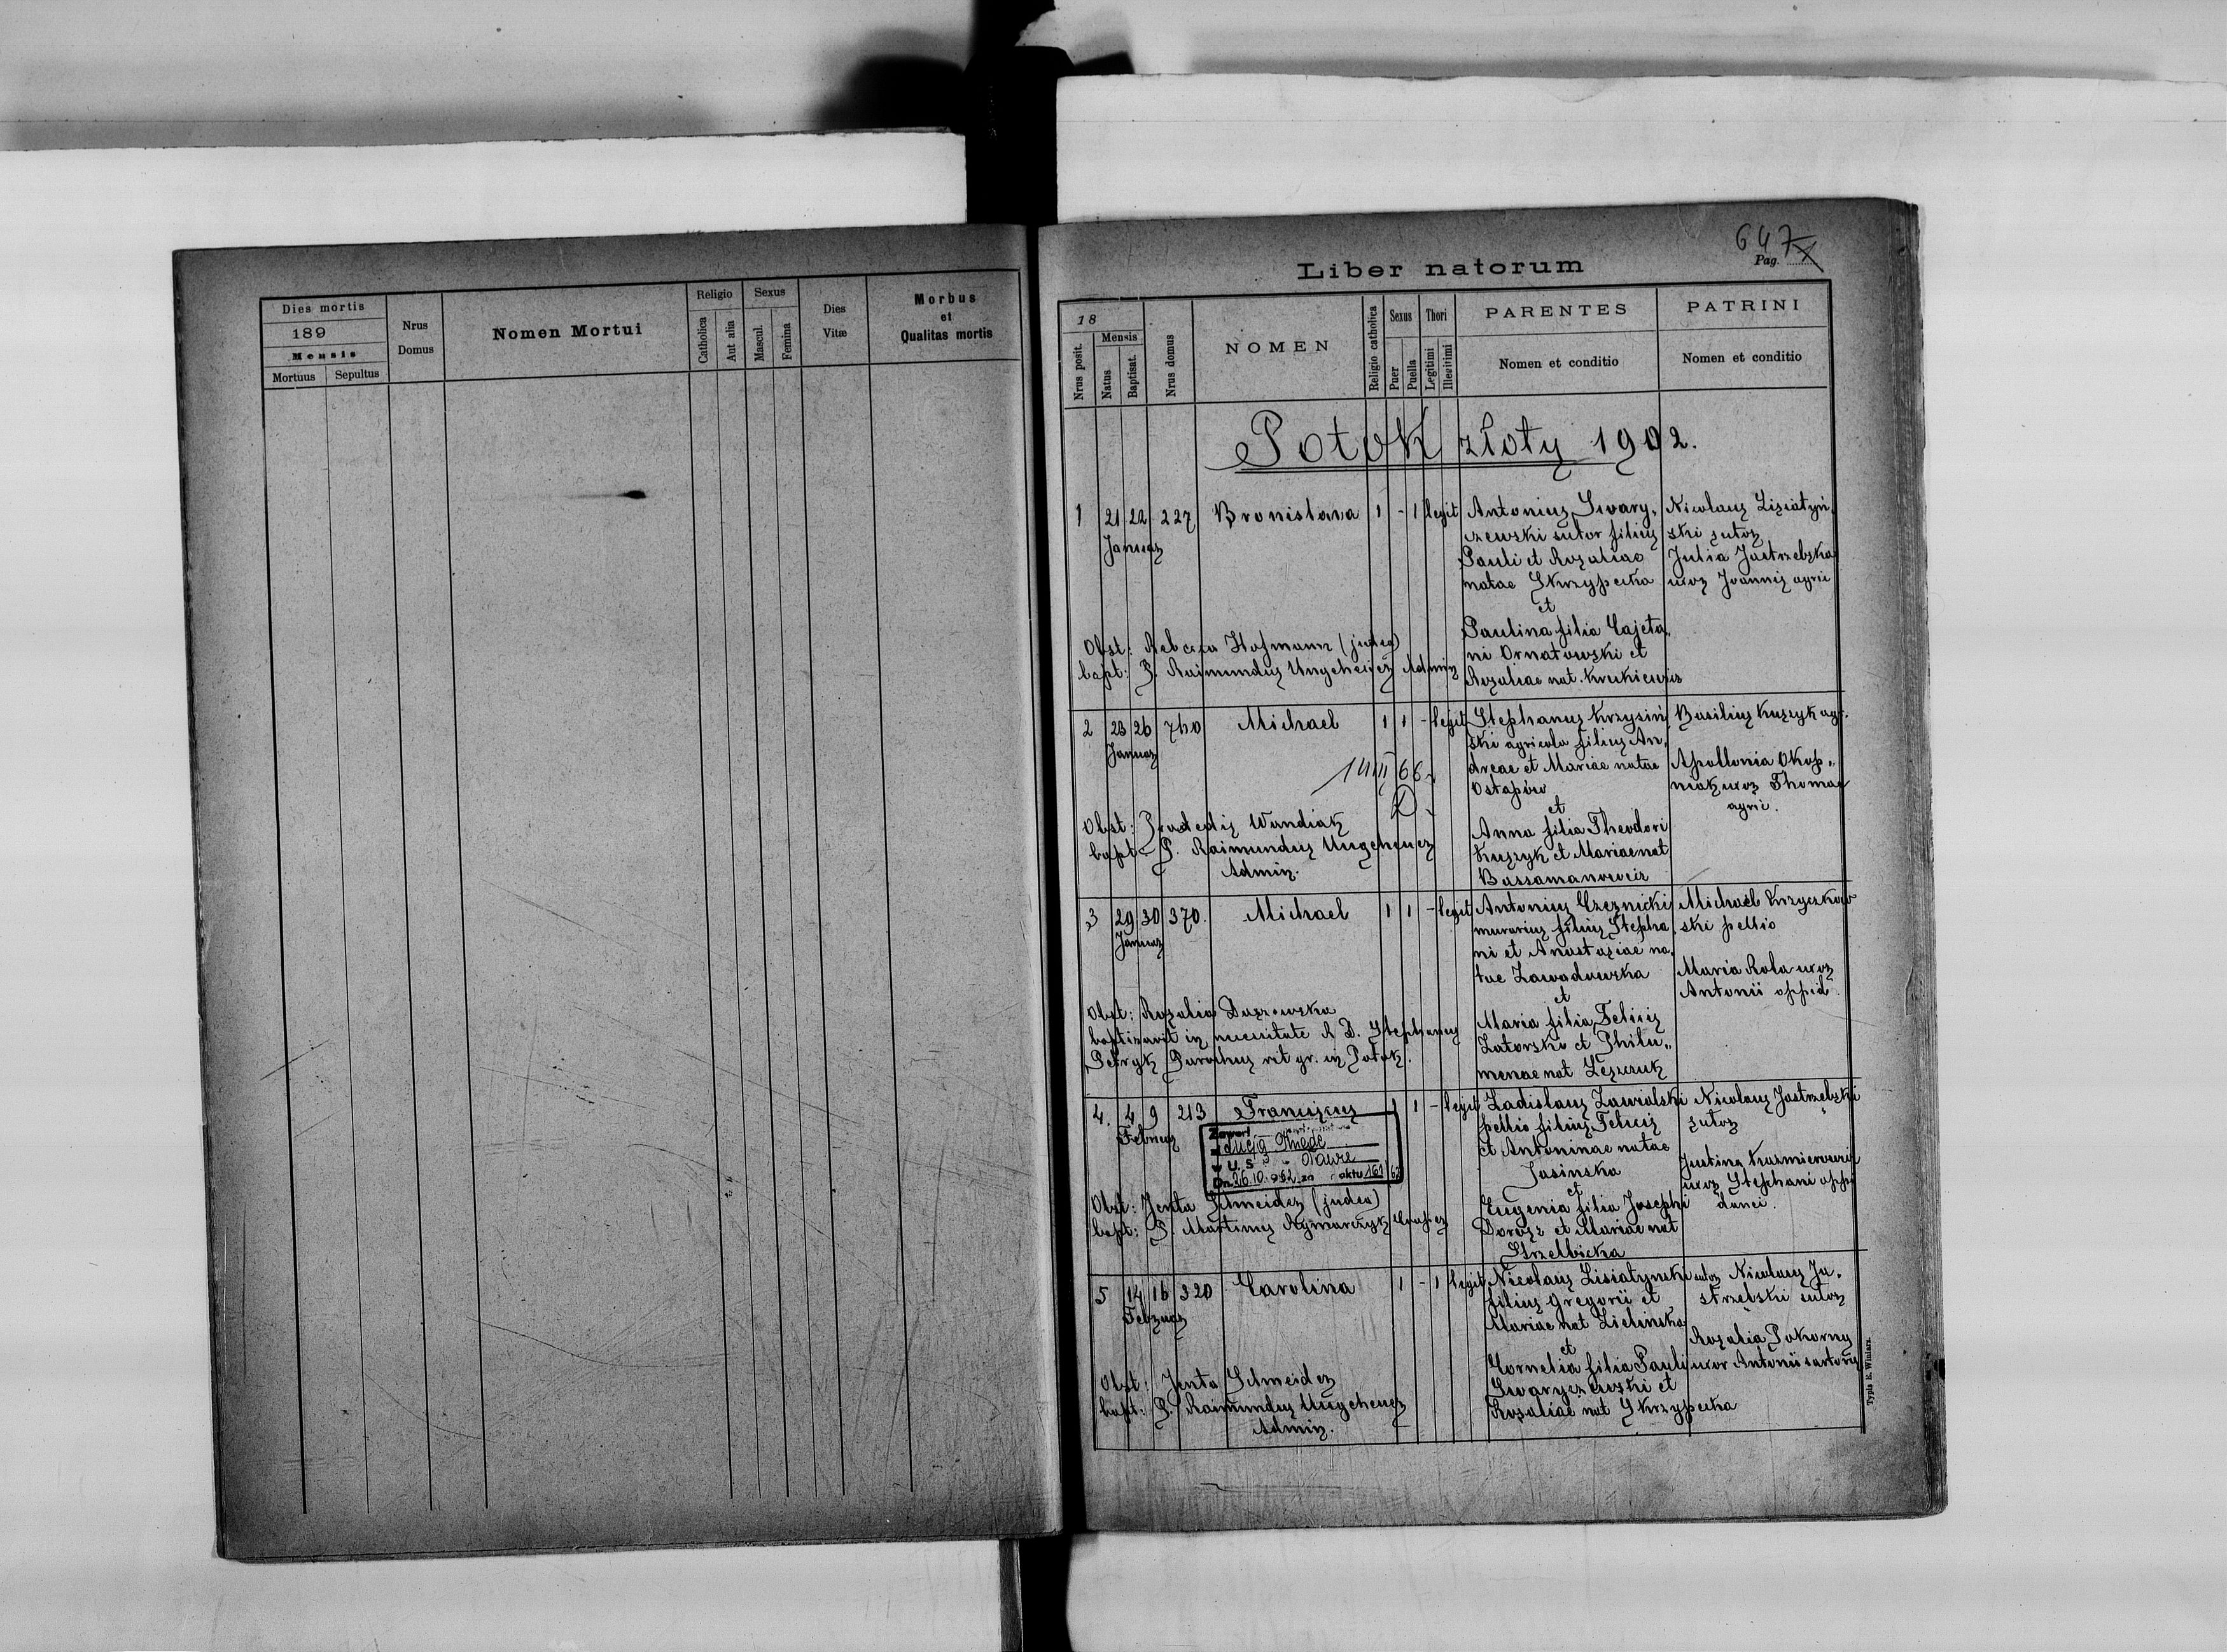 Dies mortis
189
Mensis
Mortuus Sepultus
Nrus Domus
Nomen Mortui
Religio
Catholica
Aut alia
Sexus
Mascul.
Femina
Dies Vitæ
Morbus
et
Qualitas mortis
647
Pag.
Liber natorum
18
Nrus posit.
Mensis
Natus
Baptisat.
Nrus domus
NOMEN
Religio catholica
Sexus
Puer
Puella
Thori
Legitimi
Illegitimi
PARENTES
Nomen et conditio
PATRINI
Nomen et conditio
Potok złoty 1902.
1 21 22 227 Bronislava 1 - 1 legit
Januar
Antonius Swary,
czewski sutor filius
Pauli et Rosaliae
natae Skrzypecka
et
Paulina filia Cajeta,
ni Ornatowski et
Rosaliae nat.
Nicolaus Lisiatyń,
ski sutor
Julia Jastrzebska
uxor Joannis agric
Obst: Hofmann (judea)
bapt: P. Raimundus Admin
2 23 26 740 Michael 1 1 - legit
Januar
Stephanus Krzysiń,
ski agricola filius An,
dreae et Mariae natae
Ostapów
et
Anna filia Theodori
Kuszyk et Mariae nat
Basilius Kuszyk agr.
Apollonia Okop,,
niak uxor Thomae
agric.
Obst: Wandiak
bapt: P. Raimundus
Admin.
3 29 30 370. Michael 1 1 - legit
Januar
Antonius
murarius filius Stepha,
ni et Anastasiae na,
tae Zawadowska
et
Maria filia Felicis
Zatorski et Philo,,
menae nat Leszczuk
Michael Krzyczkow
ski pellio
Maria Rola uxor
Antonii oppid.
Obst: Rosalia
baptizavit in necessitate R. D. Stephanus
Petryk Parochus rit gr. in Potok.
4. 4 9 213 Franciscus 1 1 - legit
Februar
Ladislaus Zawialski
pellio filius Felicis
et Antoninae natae
Jasinska
et
Eugenia filia Josephi
Dorosz et Mariae nat
Strzelbicka
Nicolaus Jastrzebski
sutor
Justina
uxor Stephani oppi
danei.
U. S.
26.10. 962 aktu 161/62
Obst: Jenta Schneider (judea)
bapt: P. Martinus Rymarczyk
5 14 16 320 Carolina 1 - 1 legit
Februar
Nicolaus Lisiatynski sutor
filius Gregorii et
Mariae nat Zielinska
et
Cornelia filia Pauli
Swaryczewski et
Rosaliae nat Skrzypecka
Nicolaus Ja,
strzebski sutor
Rosalia Pokorny
uxor Antonii sartoris
Obst: Jenta Schneider
bapt: P. Raimundus
Admin.
Typis E. Winiarz.